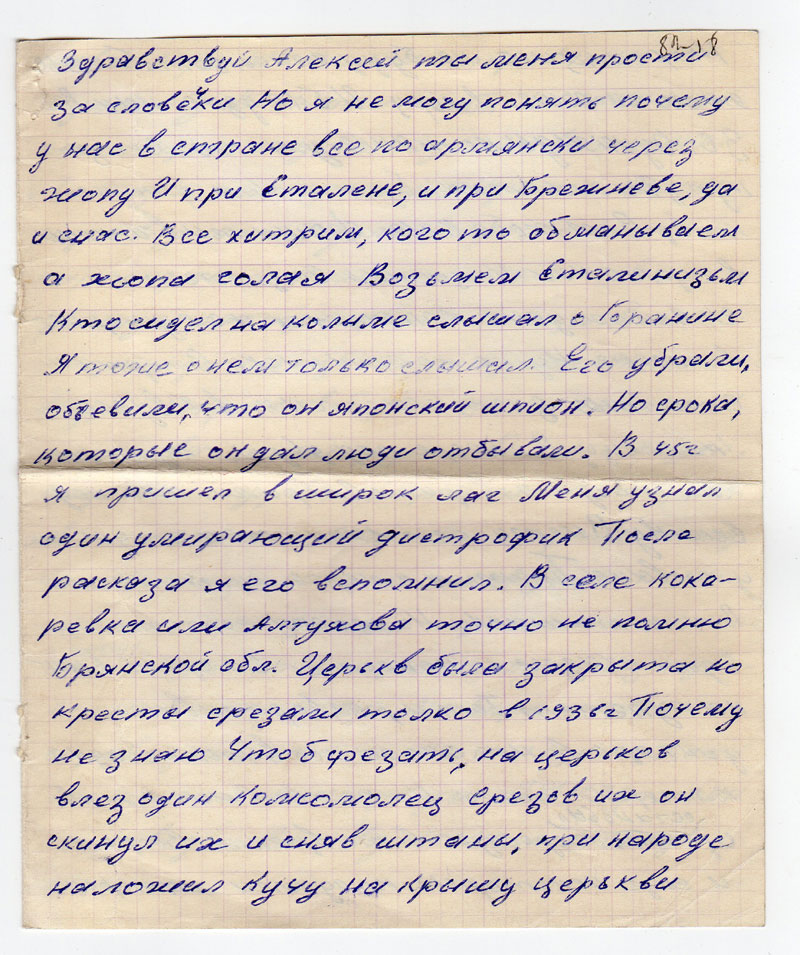 82-18
Здравствуй Алексей ты меня прости
за словечки Но я не могу понять почему
у нас в стране все по армянски через
жопу И при Сталене, и при Брежневе, да
и счас. Все хитрим, кого то обманываем
а жопа голая Возьмем Сталинизьм
Кто сидел на колыме слышал о Гранине
Я тоже о нем только слышал. Его убрали,
объевили, что он японский шпион. Но срока,
которые он дал люди отбывали. В 45г
я пришел в широк лаг Меня узнал
один умирающий дистрофик После
расказа я его вспомнил. В селе Кока-
ревка или Алтухова точно не помню
Брянской обл. Церьхв была закрыта но
кресты срезали толко в 1936г Почему
не знаю Чтоб срезать, на церьков
влез один Комсомолец Срезов их он
скинул их и сняв штаны, при народе
наложил кучу на крышу церькви